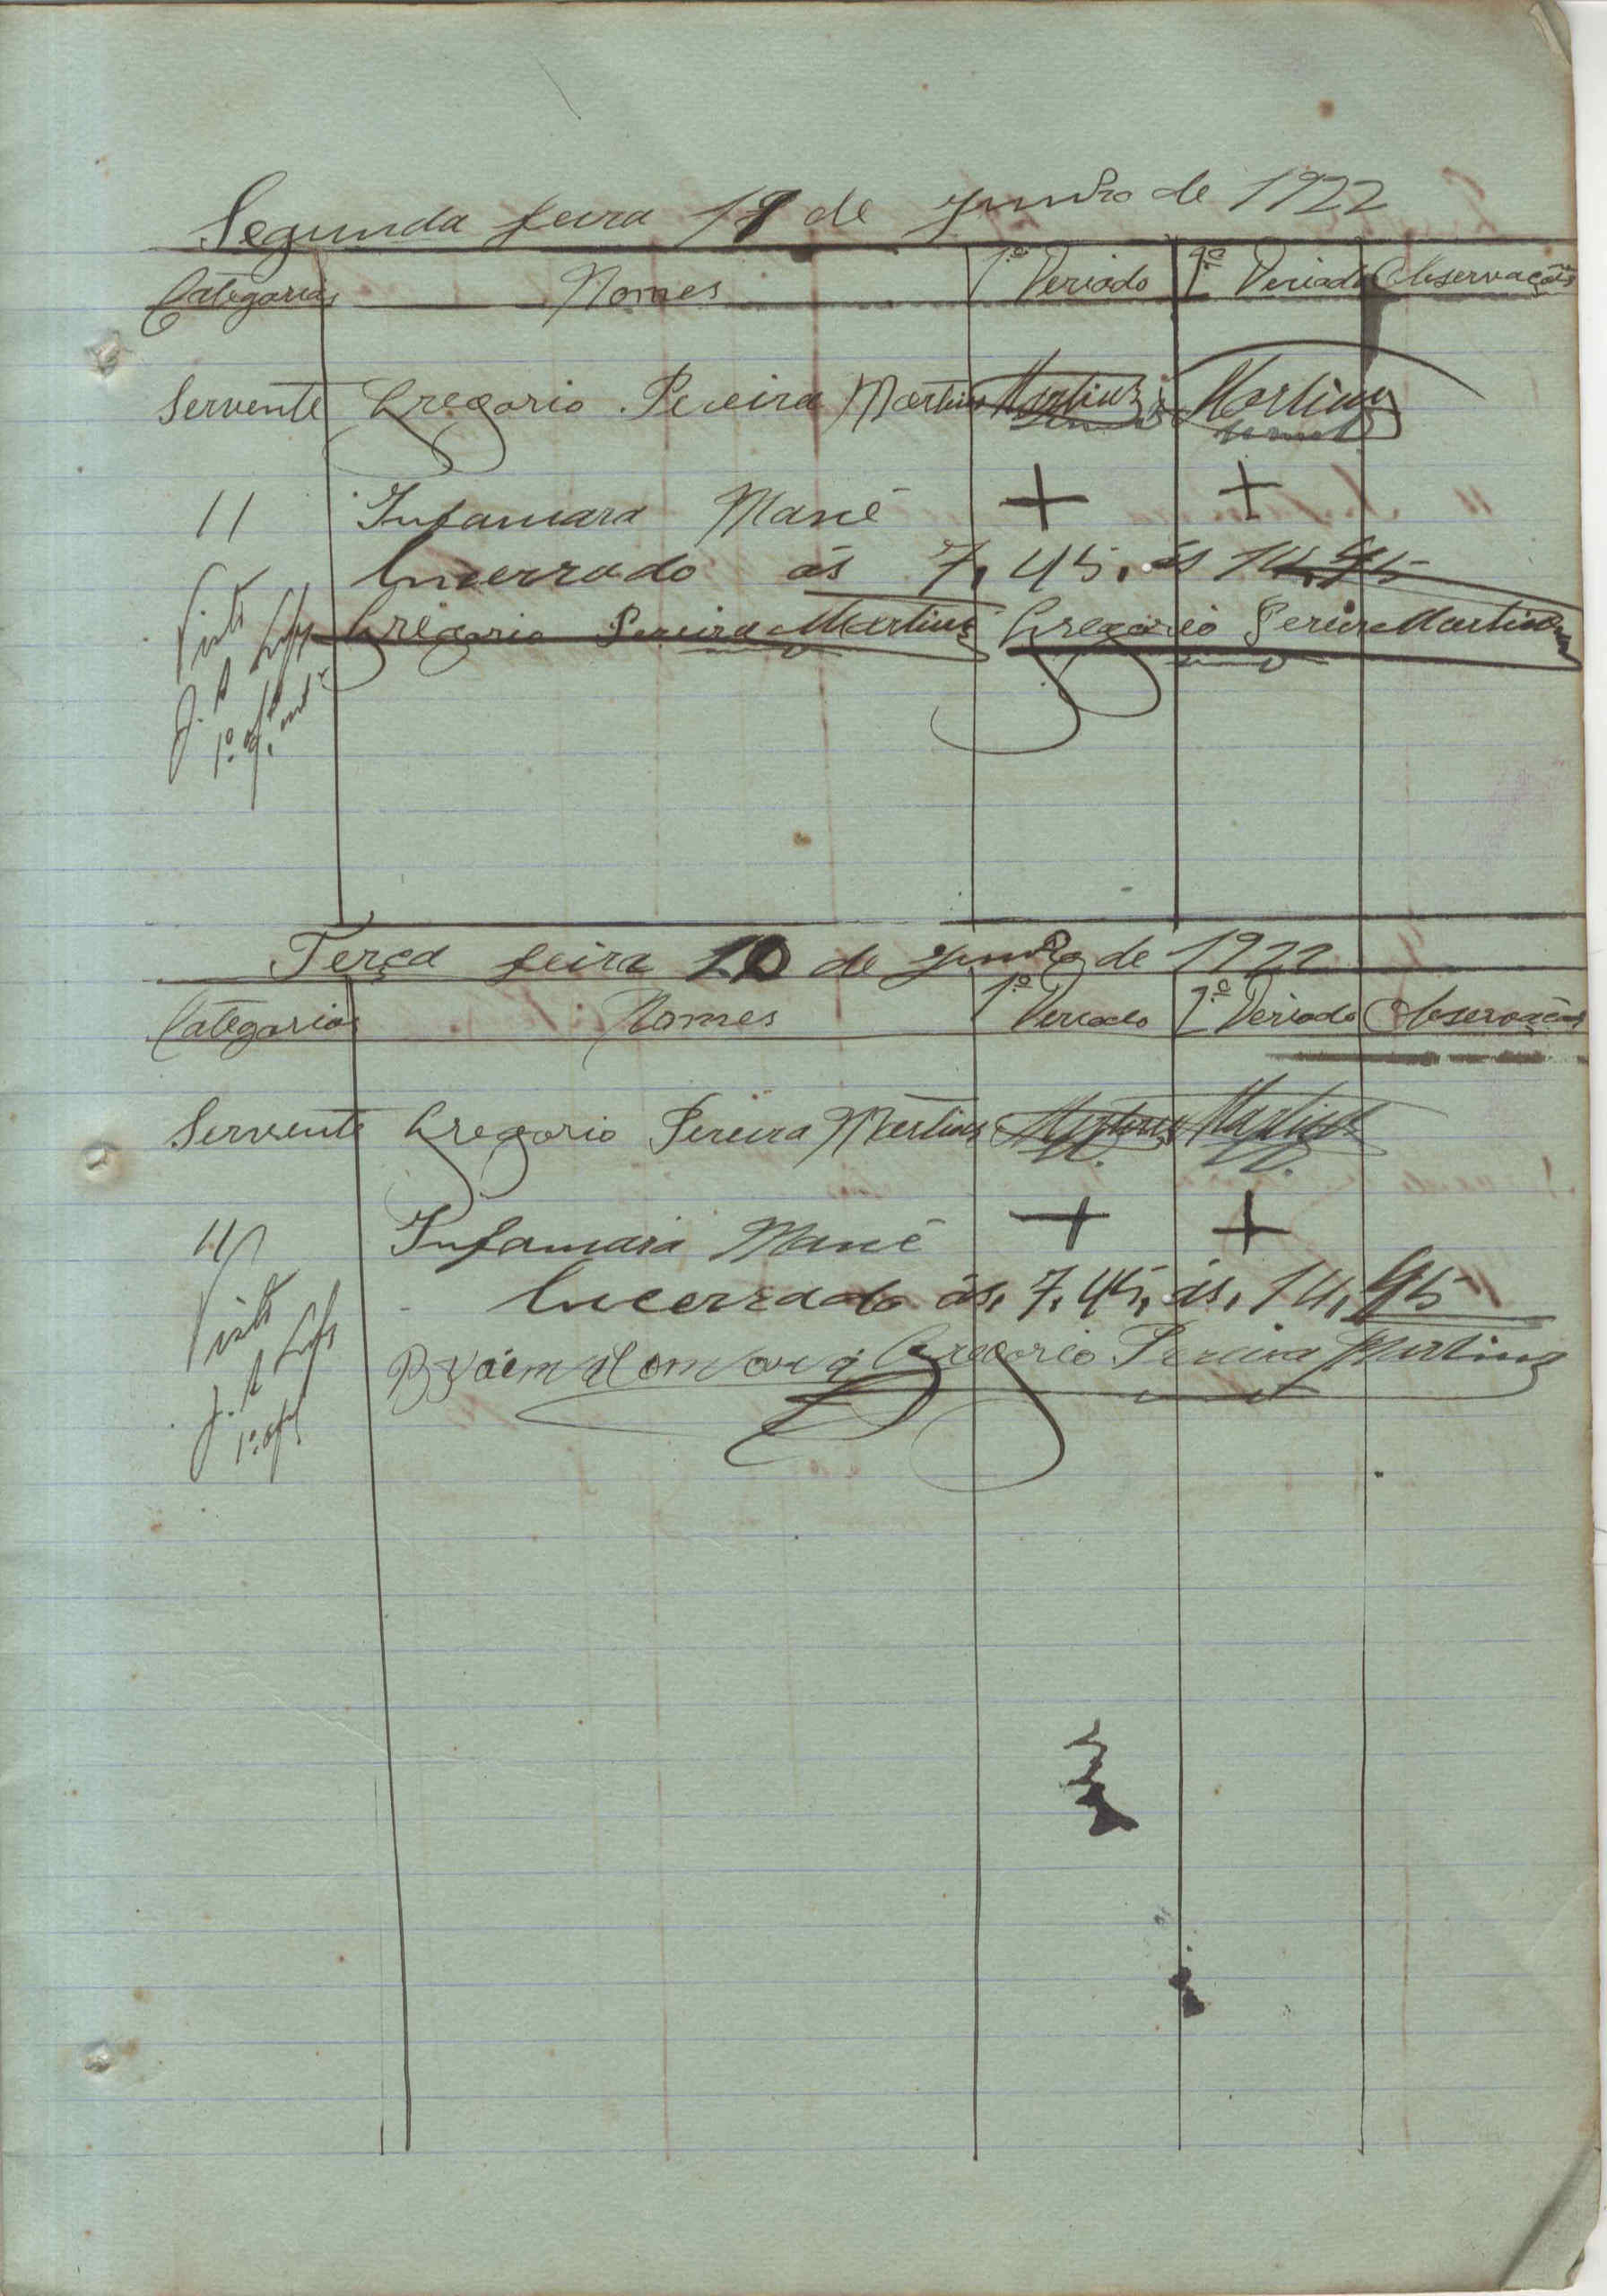 Segunda feira 19 de Junho de 1922
Categorias Nomes 1º Periodo 2º Periodo Observações
Servente Gregorio Pereira Martins Martins Martins
" Infamara Mané + +
Encerrado ás 7,45, ás 14,45
Gregorio Pereira Martins Gregorio Pereira Martins
Visto
Terça feira 20 de Junho de 1922
Categorias Nomes 1º Periodo 2º Periodo Observações
Servente Gregorio Pereira Martins Martins Martins
" Infamara Mané + +
Encerrado ás, 7,45, ás, 14,45
Gregorio Pereira Martins
Visto